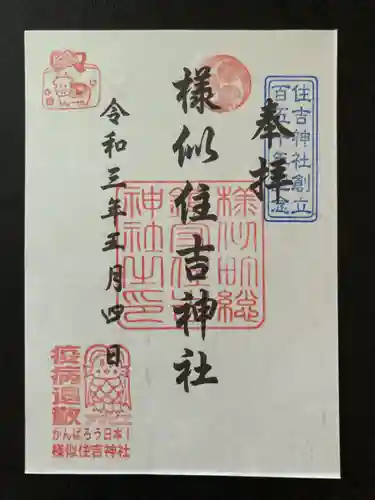 住吉神社創立
百五十年記念
奉拝
様似住吉神社
令和三年五月四日
様似郡総
鎮守住吉
神社之印
疫病退散
がんばろう日本！
様似住吉神社